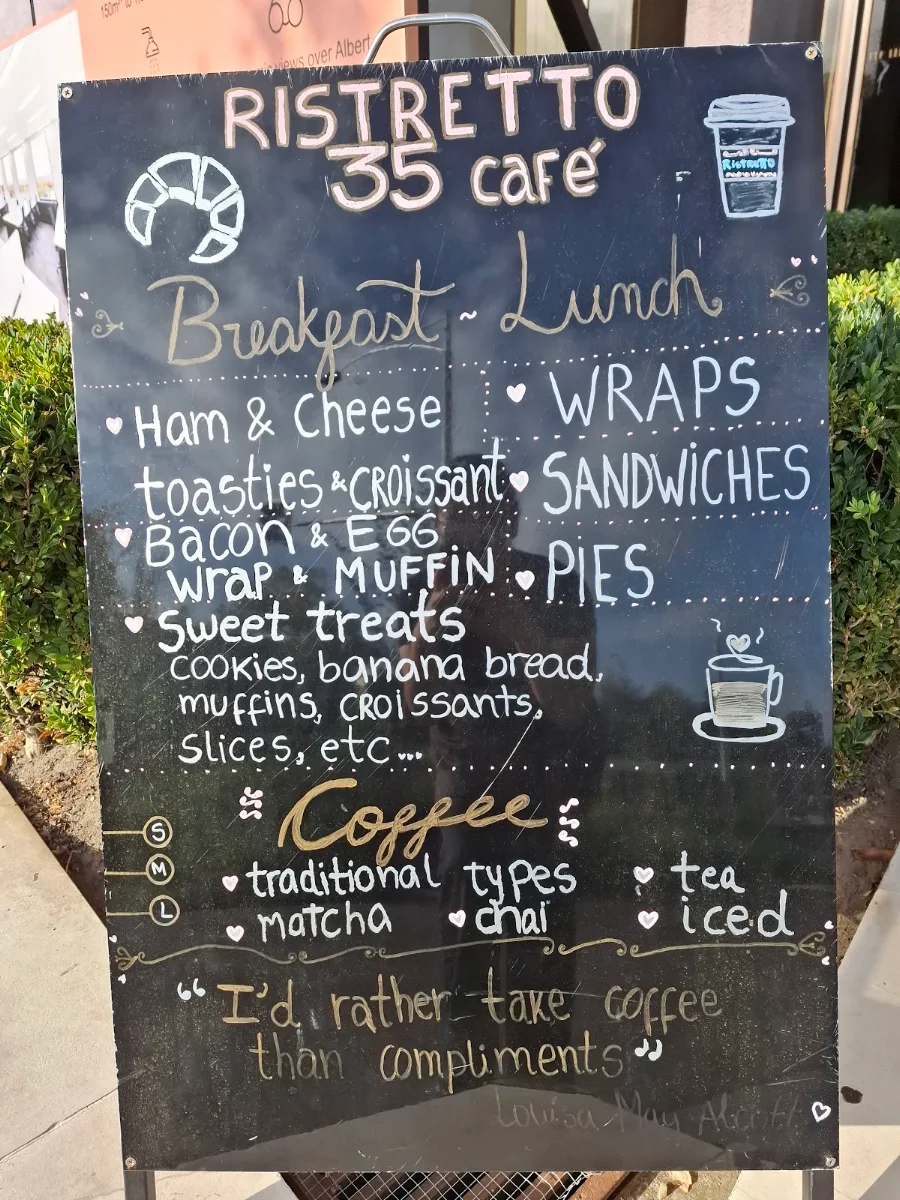 150m²
views over Albert
RISTRETTO
35 café
RistRettO
Breakfast ~ Lunch
Ham & Cheese
toasties & CROissant
Bacon & EGG
wrap & MUFFiN
Sweet treats
cookies, banana bread,
muffins, CROissants,
slices, etc...
WRAPS
SANDWiCHES
PiES
Coffee
S
M
L
traditional types
tea
matcha
chai
iced
“I'd rather take coffee
than compliments”
Louisa May Alcott